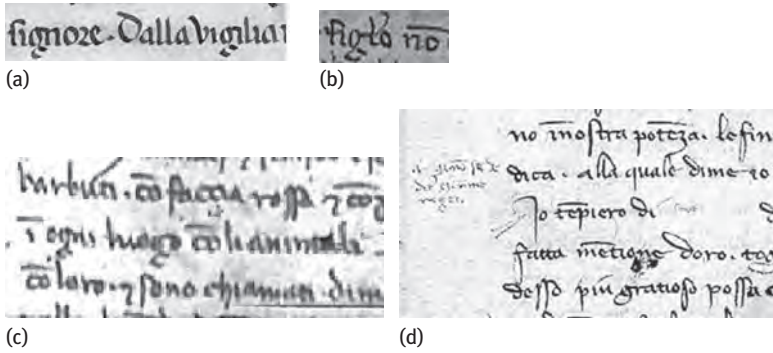 signore. Dalla vigilia
figło nō
(a)
(b)
barbuti. cō faccia rossa ⁊ cō
ī ogni luogo cō li animali
cō loro. ⁊ sono chiamati dim
(c)
no īnostra potēza. le fin
dica. alla quale dime
Io tēpiero di
fatta mētione doro.
desso più gratioso possa
(d)